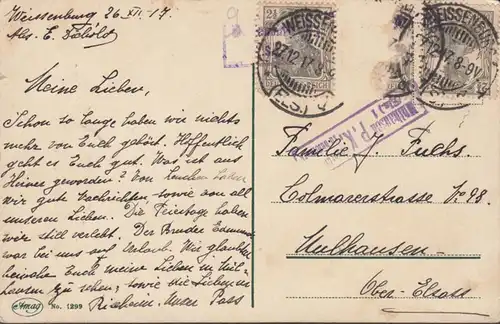 Weissenburg 26. XII. 17.
Abs. E.
WEISSENBURG
27.12.17. 8-9V.
(ELS.)
2½
Meine Lieben,
Schon so lange haben wir nichts
mehr von Euch gehört. Hoffentlich
geht es Euch gut. Was ist aus
Heiner geworden? Von
wir gute Nachrichten, sowie von all
unseren Lieben. Die Feiertage haben
wir still verlebt. Der Bruder
war bei uns auf Urlaub. Wir glaubten
beinahe Euch meine Lieben in Mül-
hausen zu sehen, sowie die Lieben in
Rixheim. Unser Pass
P.K.
Mülhausen
Familie J. Fuchs.
Colmarerstrasse Nr. 98.
Mulhausen-
Ober-Elsass
Amag No. 1299